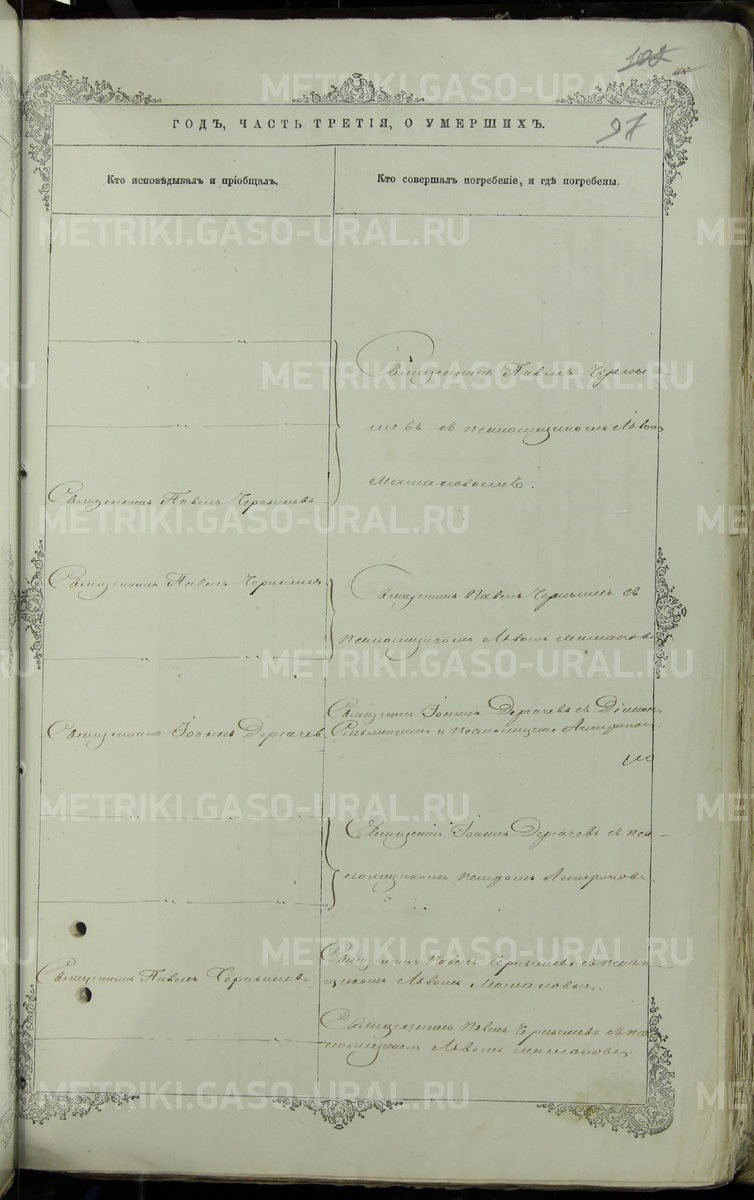 102
97
ГОДЪ, ЧАСТЬ ТРЕТІЯ, О УМЕРШИХЪ.
Кто исповѣдывалъ и пріобщалъ.
Кто совершалъ погребеніе, и гдѣ погребены.
Священникъ Павелъ Черны-
шевъ съ псаломщикомъ Львомъ
Машановымъ.
Священникъ Павелъ Чернышевъ
Священникъ Павелъ Чернышевъ
Священникъ Павелъ Чернышевъ съ
псаломщикомъ Львомъ
Священникъ Іоаннъ Дергачевъ
Священникъ Іоаннъ Дергачевъ съ Діакон
и псаломщикомъ
Священникъ Іоаннъ Дергачевъ съ пса-
ломщикомъ
Священникъ Павелъ Чернышевъ
Священникъ Павелъ Чернышевъ съ псалом
щикомъ Львомъ Машановымъ.
Священникъ Павелъ Чернышевъ съ пса
ломщикомъ Львомъ
METRIKI.GASO-URAL.RU